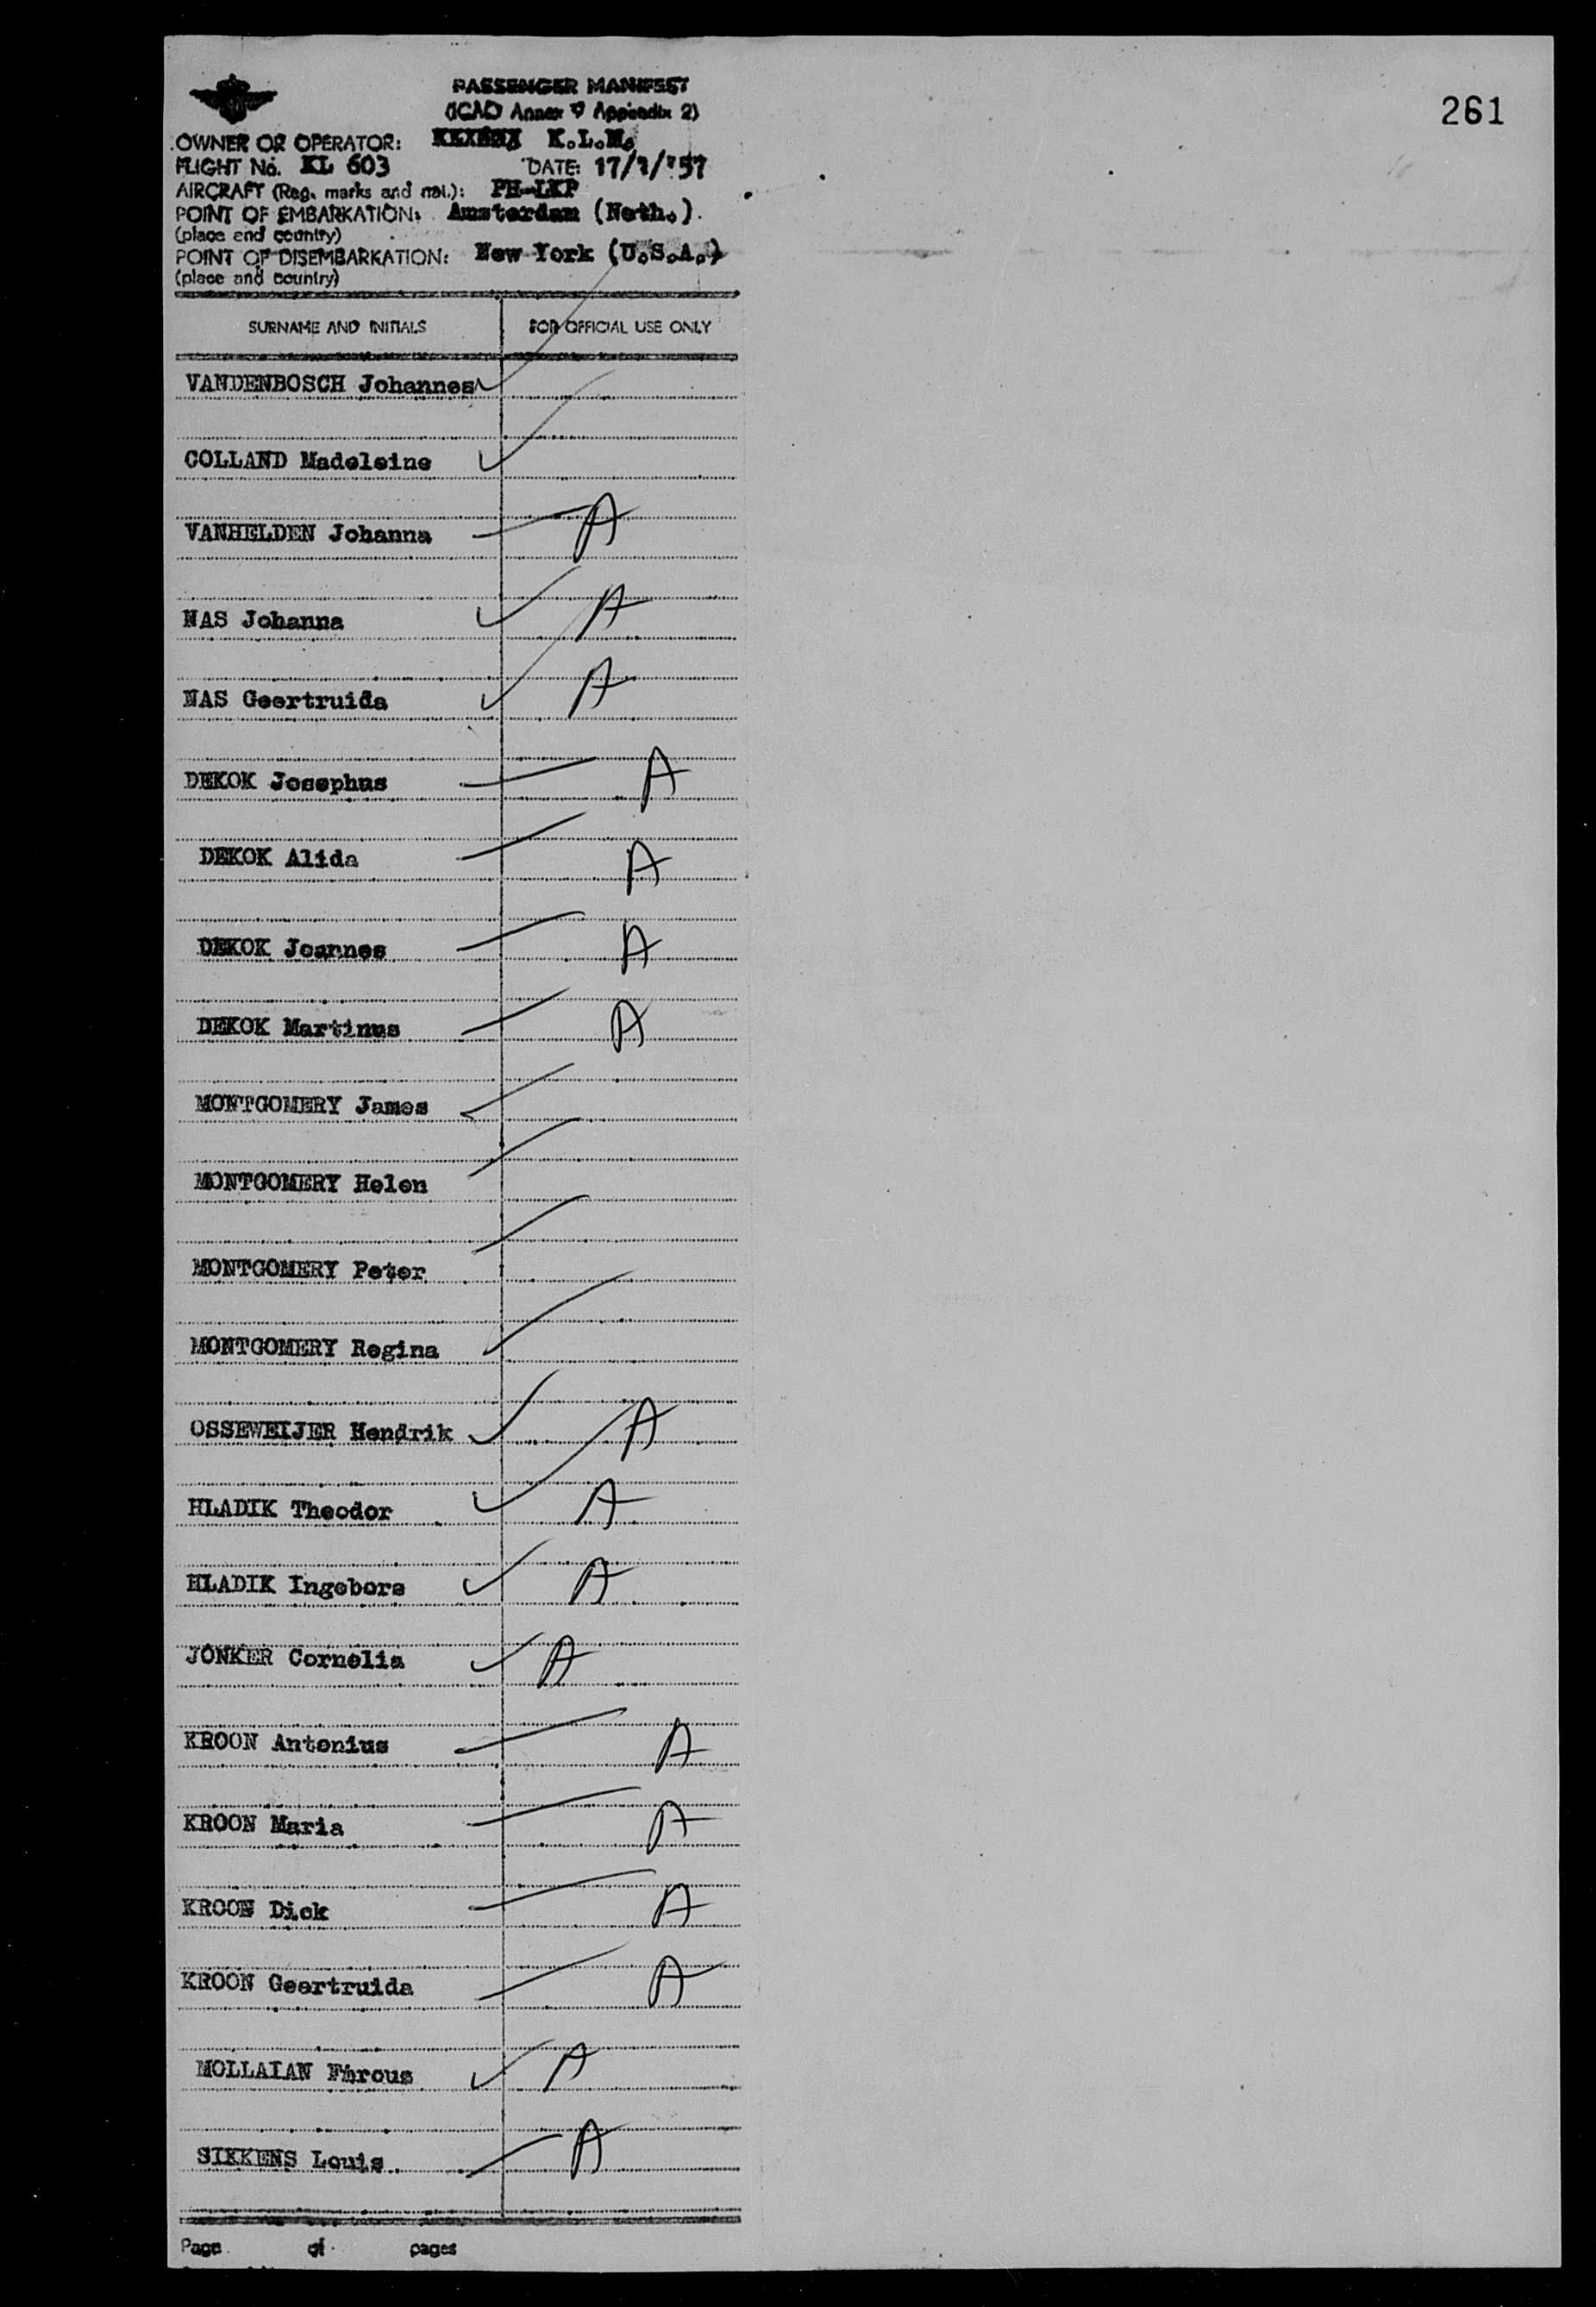 261
PASSENGER MANIFEST
(ICAO Annex 9 Appendix 2)
OWNER OR OPERATOR: K.L.M.
FLIGHT No. KL 603 DATE: 17/7/'57
AIRCRAFT (Reg. marks and nat.): PH-LKP
POINT OF EMBARKATION: Amsterdam (Neth.).
(place and country)
POINT OF DISEMBARKATION: New York (U.S.A.)
(place and country)
SURNAME AND INITIALS FOR OFFICIAL USE ONLY
VANDENBOSCH Johannes
COLLAND Madeleine
VANHELDEN Johanna A
NAS Johanna A
NAS Geertruida A
DEKOK Josephus A
DEKOK Alida A
DEKOK Joannes A
DEKOK Martinus A
MONTGOMERY James
MONTGOMERY Helen
MONTGOMERY Peter
MONTGOMERY Regina
OSSEWEIJER Hendrik A
HLADIK Theodor A
HLADIK Ingebors A
JONKER Cornelia A
KROON Antonius A
KROON Maria A
KROON Dick A
KROON Geertruida A
MOLLAIAN Farous A
SIKKENS Louis A
Page of pages